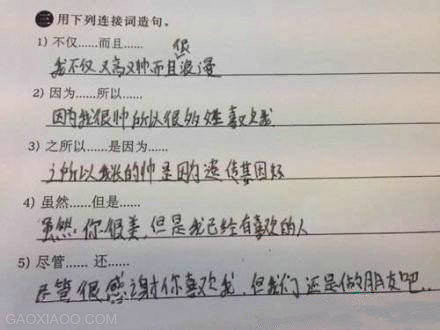 三 用下列连接词造句。
1) 不仅……而且……
很
我不仅又高又帅而且浪漫
2) 因为……所以……
因为我很帅所以很多女生喜欢我
3) 之所以……是因为……
之所以我长的帅是因为遗传基因好
4) 虽然……但是……
虽然你很美,但是我已经有喜欢的人
5) 尽管…… 还……
尽管很感谢你喜欢我,但我们还是做朋友吧..
GAOXIAOO.COM